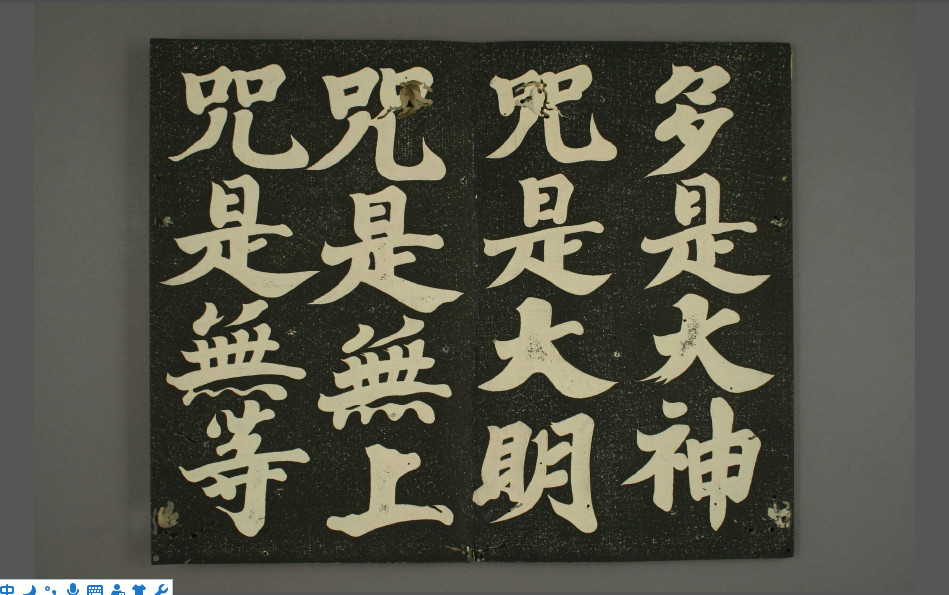 多是大神
咒是大明
咒是無上
咒是無等
中